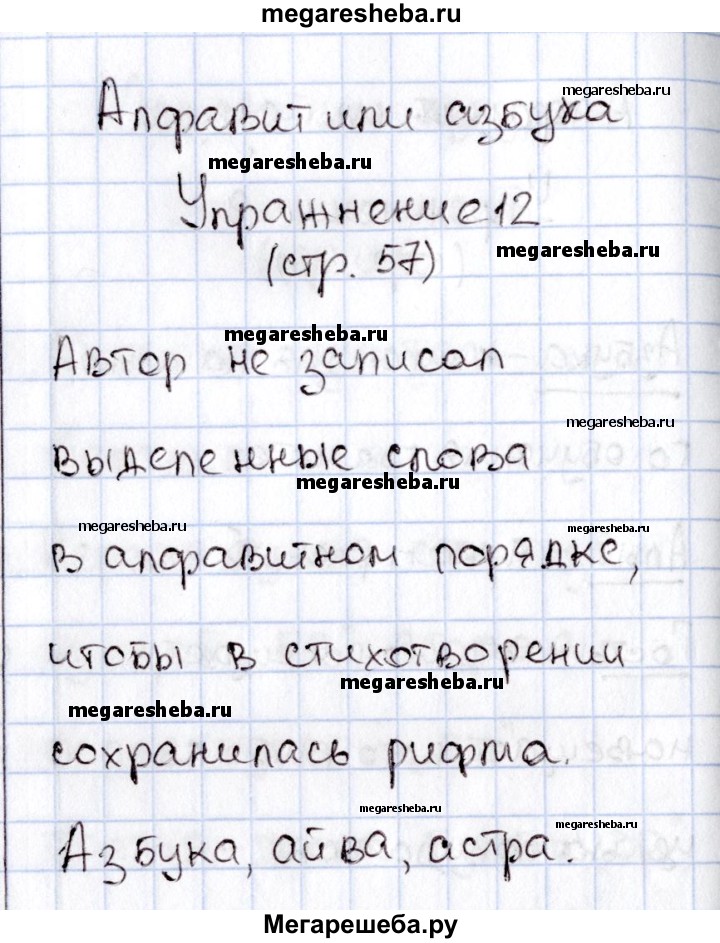 megaresheba.ru
megaresheba.ru
Алфавит или азбука
megaresheba.ru
Упражнение 12
megaresheba.ru
(стр. 57)
megaresheba.ru
Автор не записал
megaresheba.ru
выделенные слова
megaresheba.ru
megaresheba.ru
megaresheba.ru
в алфавитном порядке,
чтобы в стихотворении
megaresheba.ru
megaresheba.ru
сохранилась рифма.
megaresheba.ru
megaresheba.ru
Азбука, айва, астра.
Мегарешеба.ру